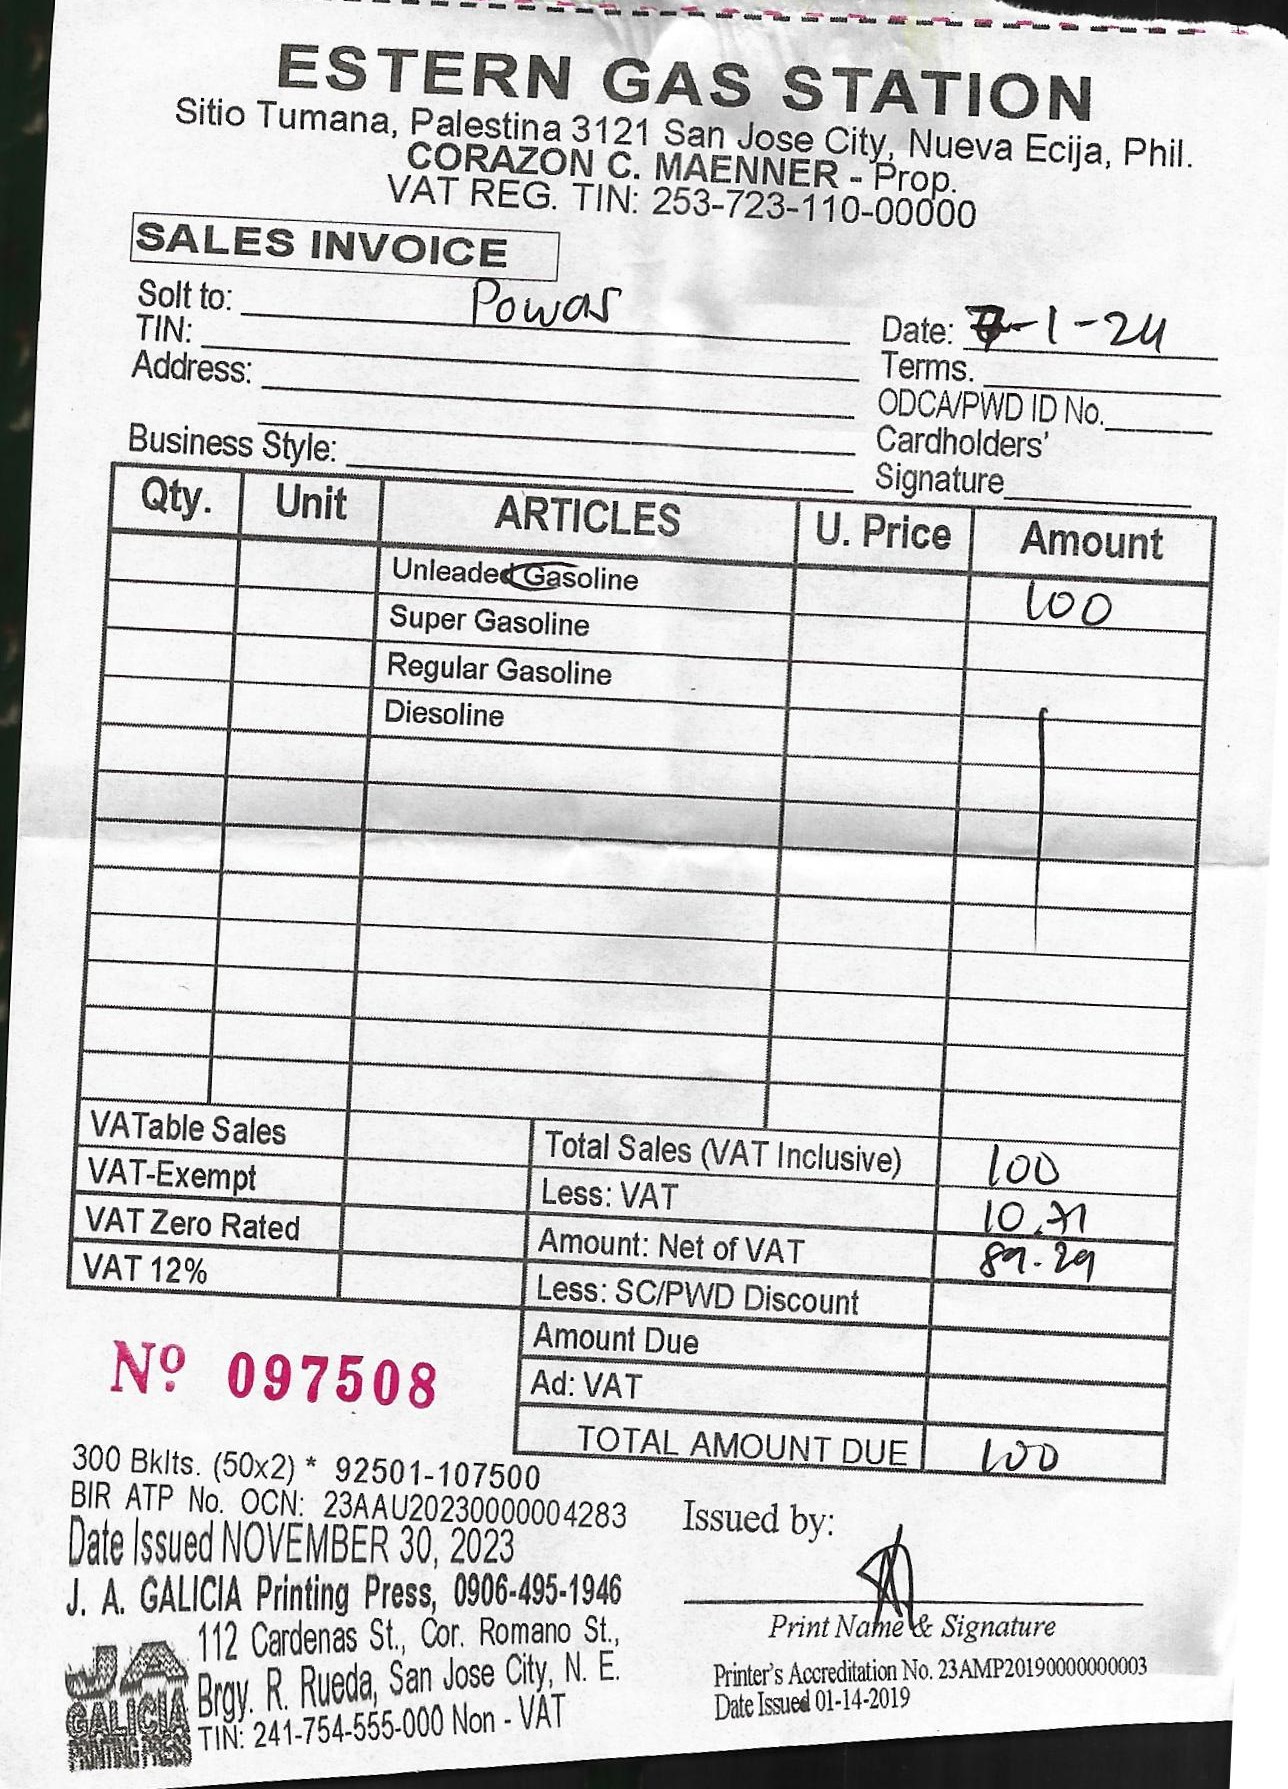 ESTERN GAS STATION
Sitio Tumana, Palestina 3121 San Jose City, Nueva Ecija, Phil.
CORAZON C. MAENNER - Prop.
VAT REG. TIN: 253-723-110-00000
SALES INVOICE
Solt to: Powas
Date: 7-1-24
TIN:
Terms.
Address:
ODCA/PWD ID No.
Cardholders'
Business Style:
Signature
Qty. Unit ARTICLES U. Price Amount
Unleaded Gasoline 100
Super Gasoline
Regular Gasoline
Diesoline
VATable Sales Total Sales (VAT Inclusive) 100
VAT-Exempt Less: VAT 10.71
VAT Zero Rated Amount: Net of VAT 89.29
VAT 12% Less: SC/PWD Discount
Amount Due
Nº 097508
Ad: VAT
TOTAL AMOUNT DUE 100
300 Bklts. (50x2) * 92501-107500
BIR ATP No. OCN: 23AAU20230000004283
Date Issued NOVEMBER 30, 2023
J. A. GALICIA Printing Press, 0906-495-1946
112 Cardenas St., Cor. Romano St.,
Brgy. R. Rueda, San Jose City, N. E.
TIN: 241-754-555-000 Non - VAT
JA
GALICIA
PRINTING PRESS
Issued by:
Print Name & Signature
Printer's Accreditation No. 23AMP20190000000003
Date Issued 01-14-2019